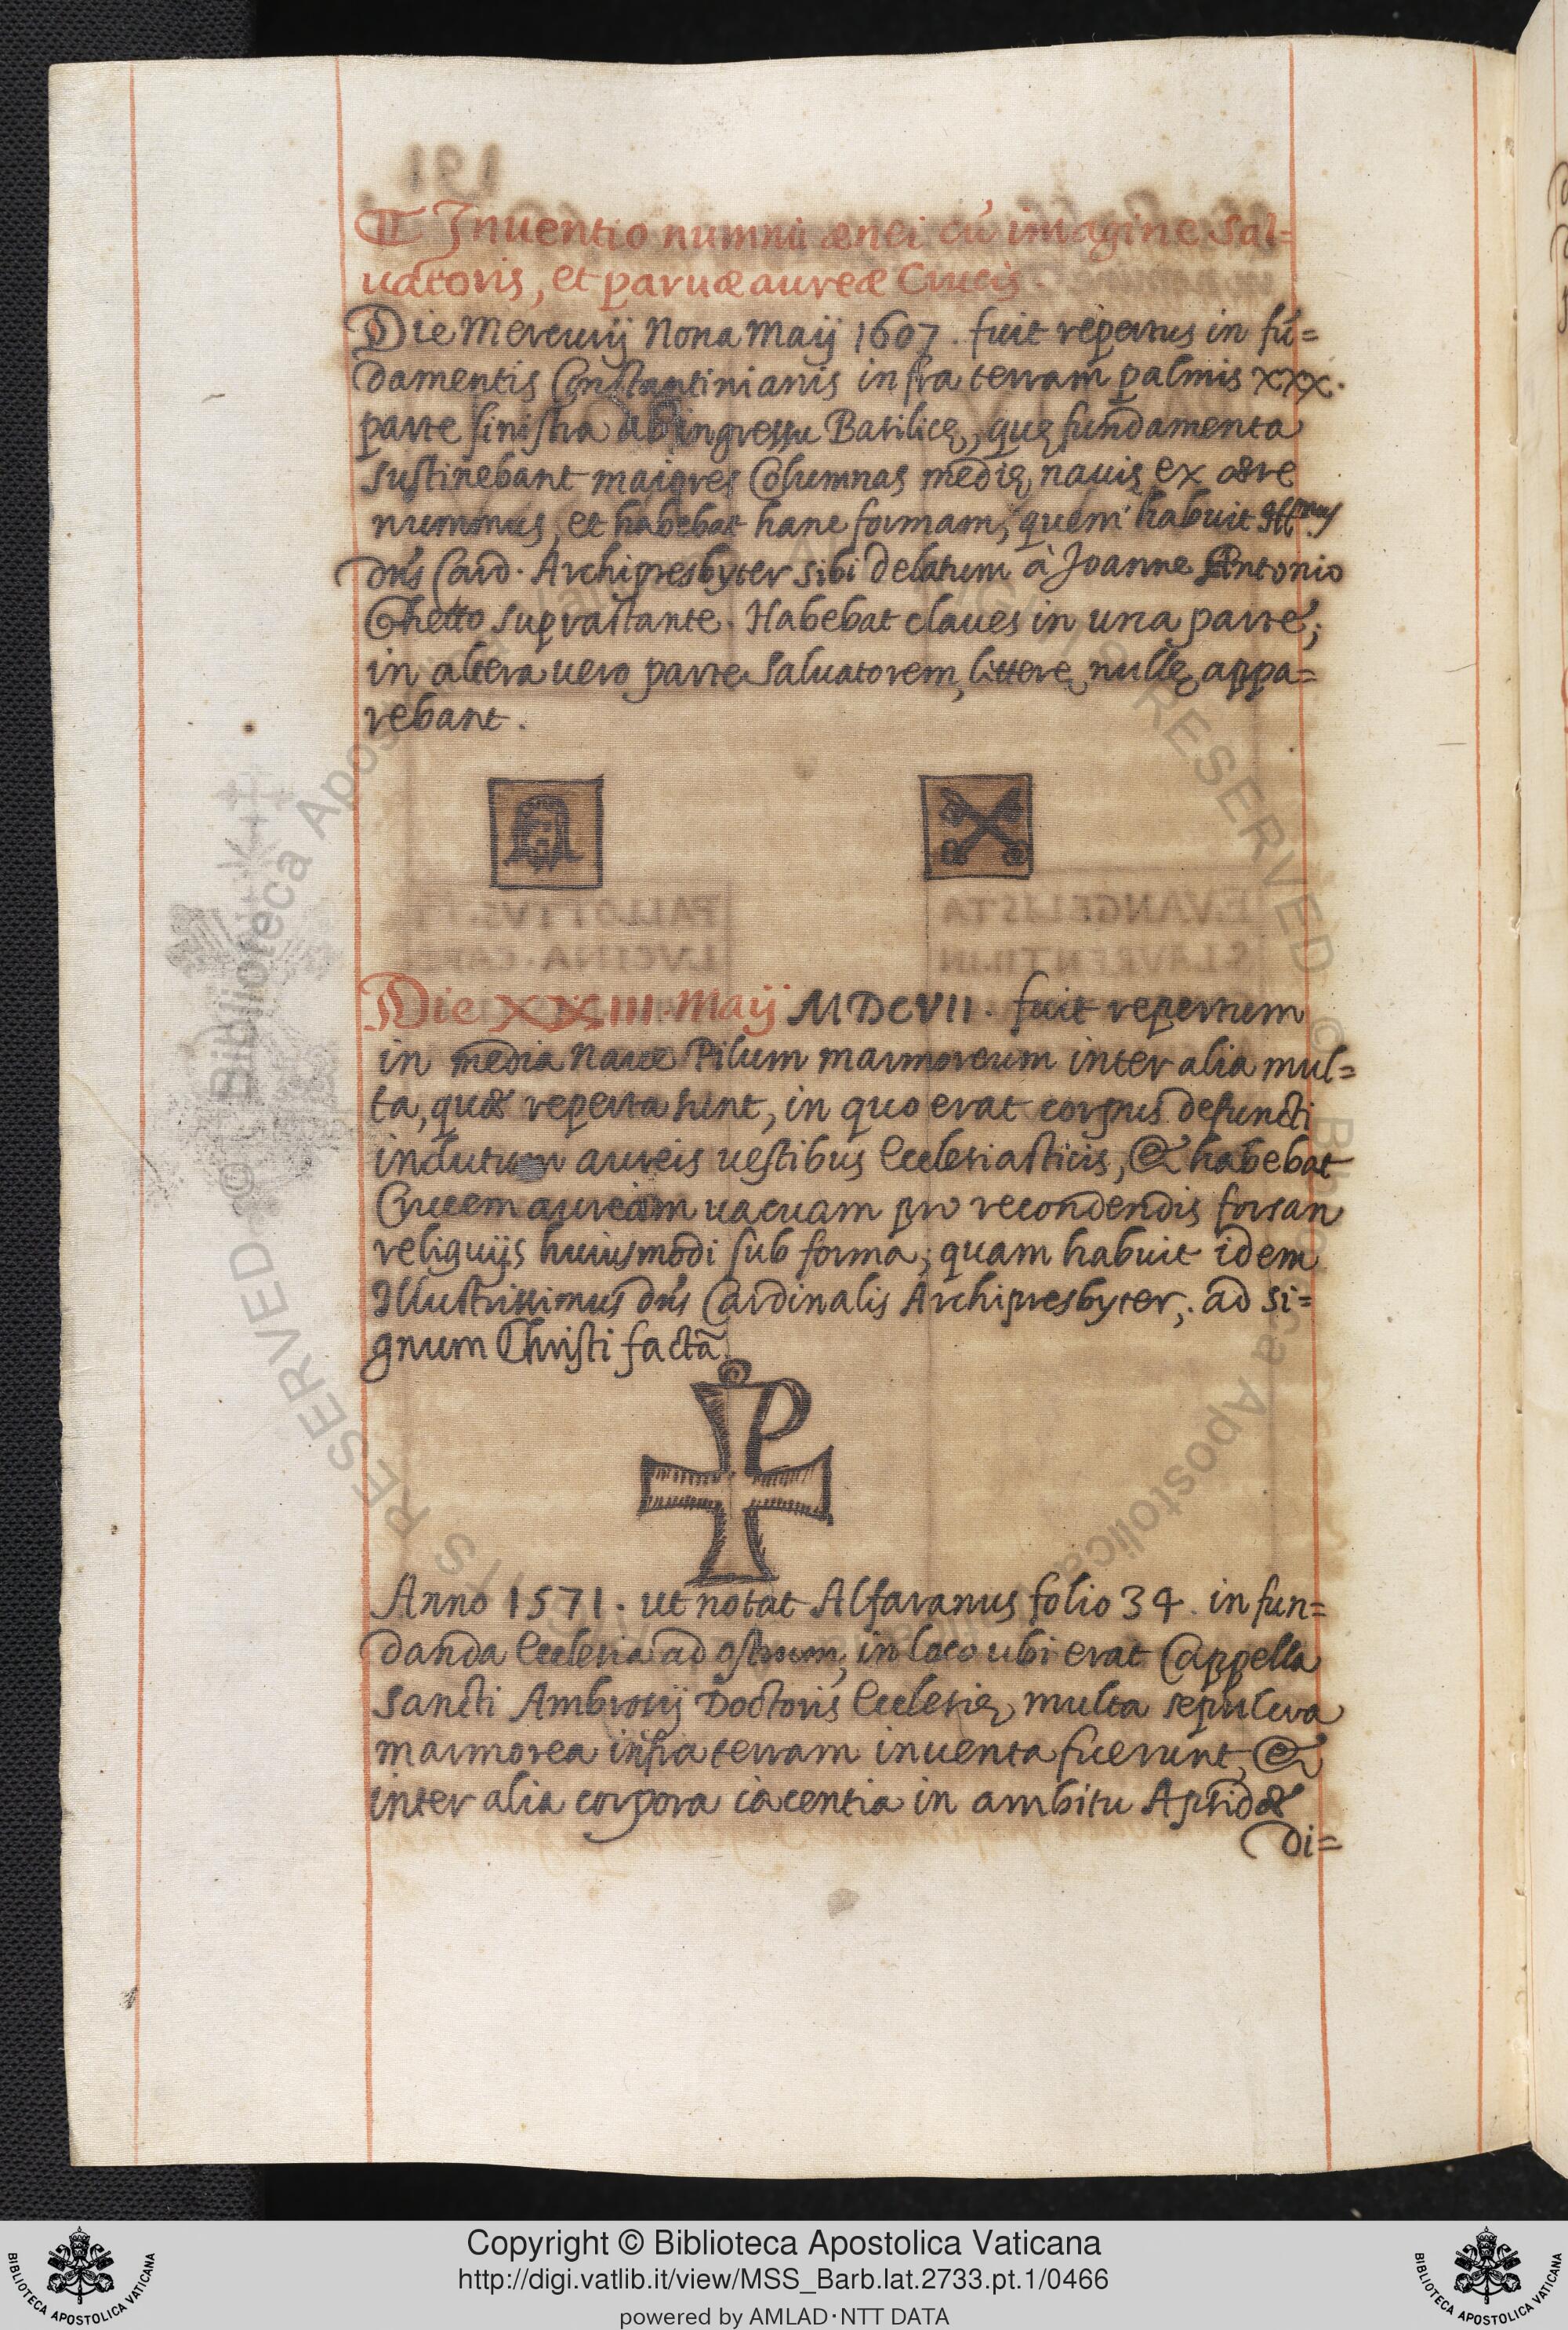 ¶ Inuentio nummi ænei cu̅ imagine Sal=
uatoris, et paruæ aureæ Crucis.
Die Mercurij Nona Maij 1607. fuit repertus in fu̅=
damentis Constantinianis infra terram palmis xxx.
parte sinistra ab ingressu Basilicę, quę fundamenta
sustinebant maiores Columnas medię nauis ex ære
nummus, et habebat hanc formam, quem habuit Ill.mus
dn̅s Card. Archipresbyter sibi delatum à Joanne Antonio
Ghetto suprastante. Habebat claues in una parte;
in altera uero parte Saluatorem, litterę nullę appa=
rebant.
Die XXIII. Maij MDCVII. fuit repertum
in media naue Pilum marmoreum inter alia mul=
ta, quæ reperta sunt, in quo erat corpus defuncti
indutum aureis uestibus Ecclesiasticis, & habebat
Crucem auream uacuam pro recondendis forsan
reliquijs huiusmodi sub forma; quam habuit idem
Illustrissimus dn̅s Cardinalis Archipresbyter, ad si=
gnum Christi factã.
Anno 1571. ut notat Alfaranus folio 34. in fun=
danda Ecclesia ad ostium, in loco ubi erat Cappella
Sancti Ambrosij Doctoris Ecclesię, multa sepulcra
marmorea infra terram inuenta fuerunt, &
inter alia corpora iacentia in ambitu Apsidæ
di=
Copyright © Biblioteca Apostolica Vaticana
http://digi.vatlib.it/view/MSS_Barb.lat.2733.pt.1/0466
powered by AMLAD·NTT DATA
BIBLIOTECA APOSTOLICA VATICANA
BIBLIOTECA APOSTOLICA VATICANA